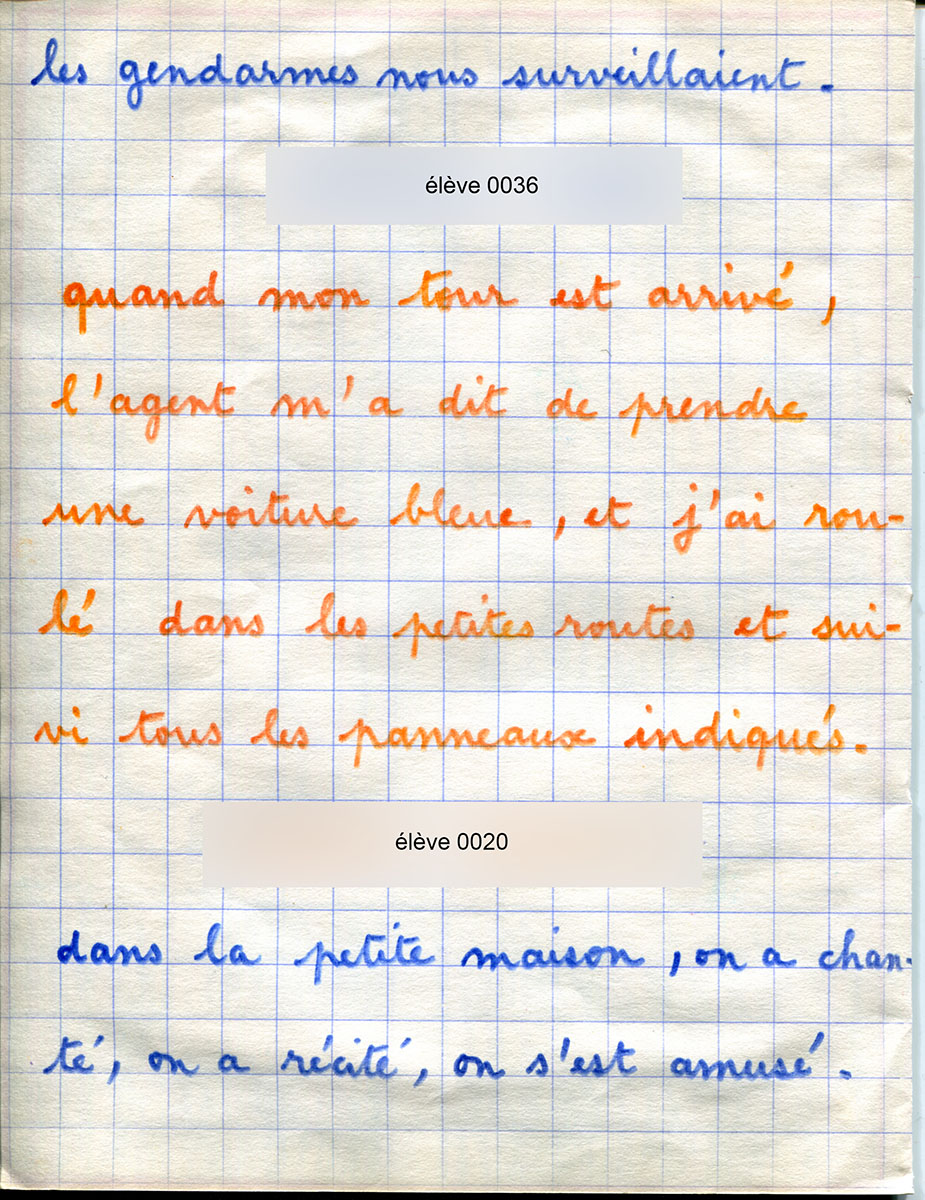 les gendarmes nous surveillaient.
élève 0036
quand mon tour est arrivé,
l'agent m'a dit de prendre
une voiture bleue, et j'ai rou-
lé dans les petites routes et sui-
vi tous les panneaux indiqués.
élève 0020
dans la petite maison, on a chan-
té, on a récité, on s'est amusé.